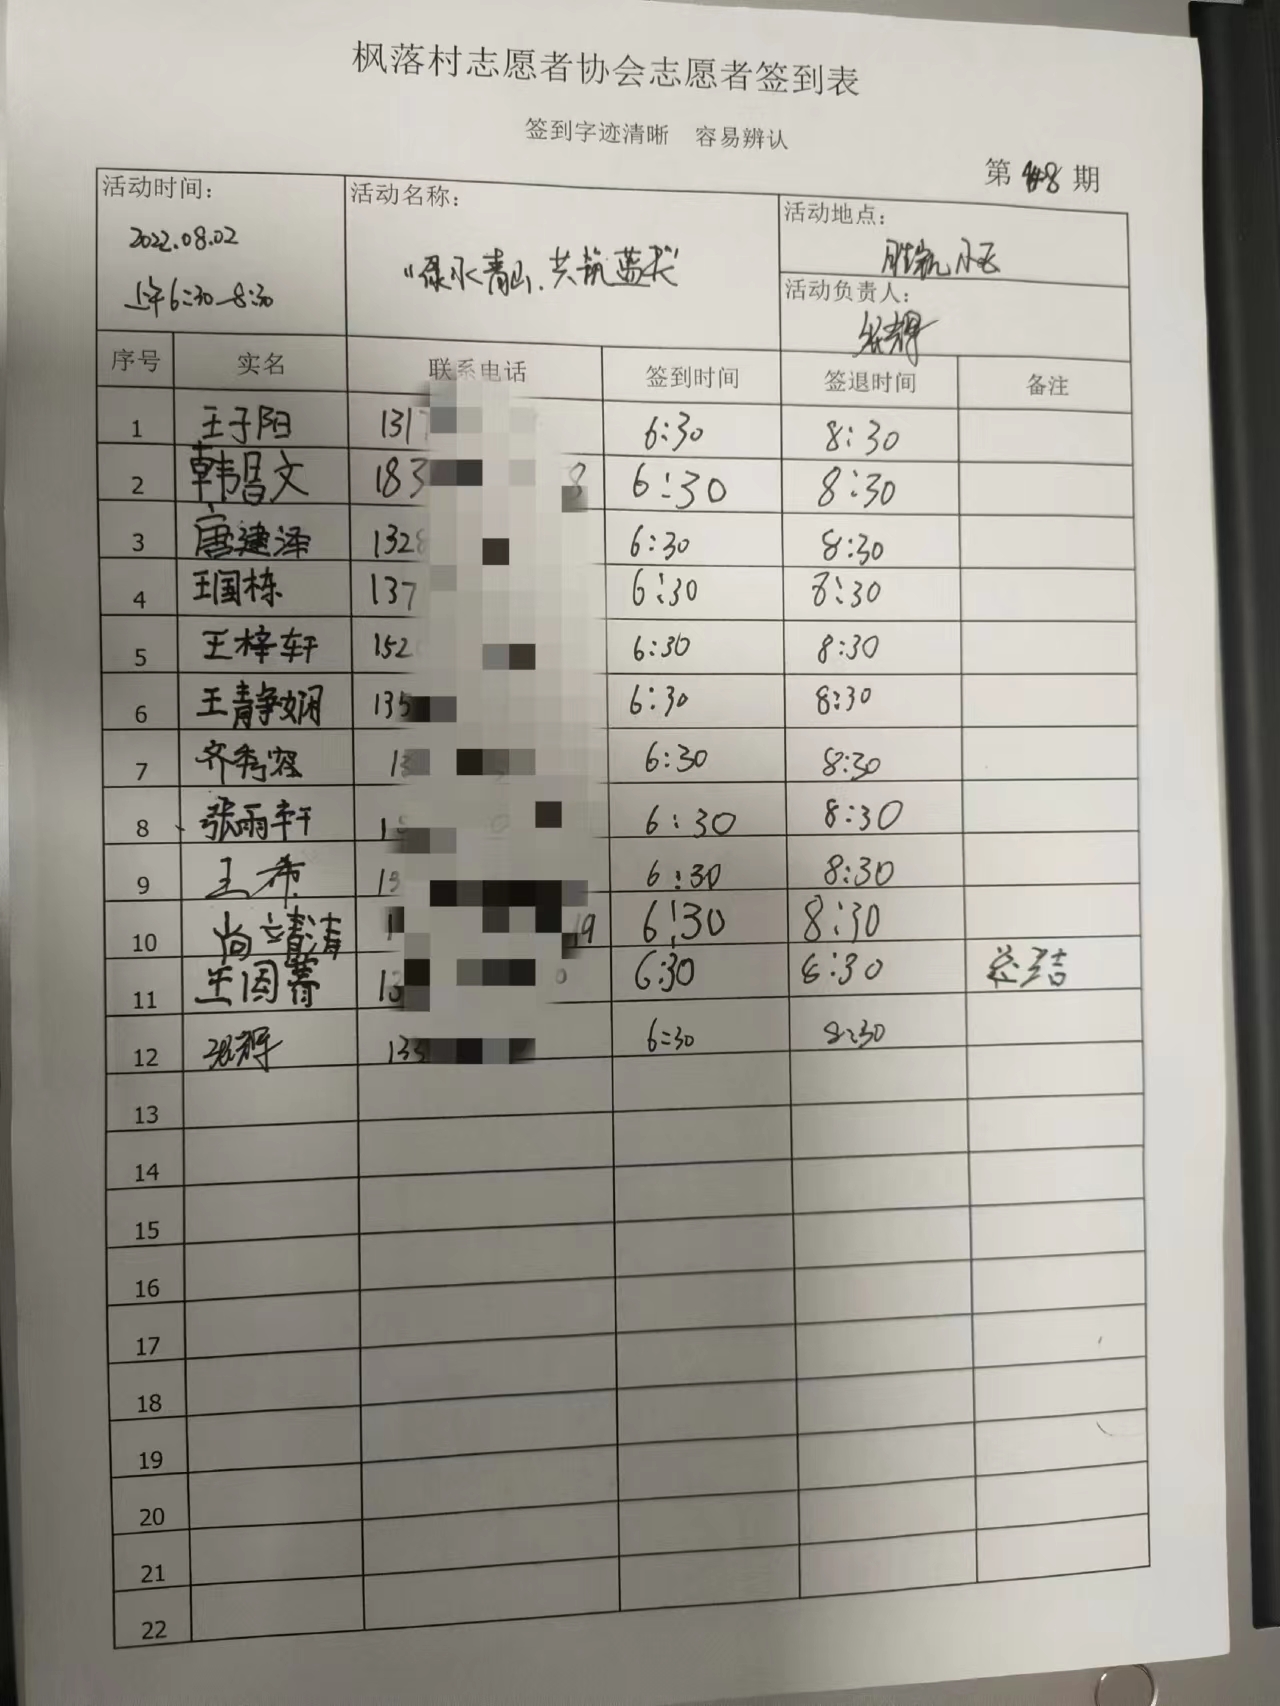 枫落村志愿者协会志愿者签到表
签到字迹清晰 容易辨认
第 48 期
活动时间: 活动名称: 活动地点:
2022.08.02
上午6:30-8:30
"绿水青山、共筑蓝天"
小区
活动负责人:
张辉
序号 实名 联系电话 签到时间 签退时间 备注
1 王子阳 131 6:30 8:30
2 韩昌文 183 8 6:30 8:30
3 唐建泽 1328 6:30 8:30
4 王国栋 137 6:30 8:30
5 王梓轩 152 6:30 8:30
6 王静娴 135 6:30 8:30
7 齐秀容 13 6:30 8:30
8 张雨轩 1 6:30 8:30
9 王希 15 6:30 8:30
10 尚靖涛 1 19 6:30 8:30
11 王因 13 0 6:30 8:30 总结
12 张辉 133 6:30 8:30
13
14
15
16
17
18
19
20
21
22